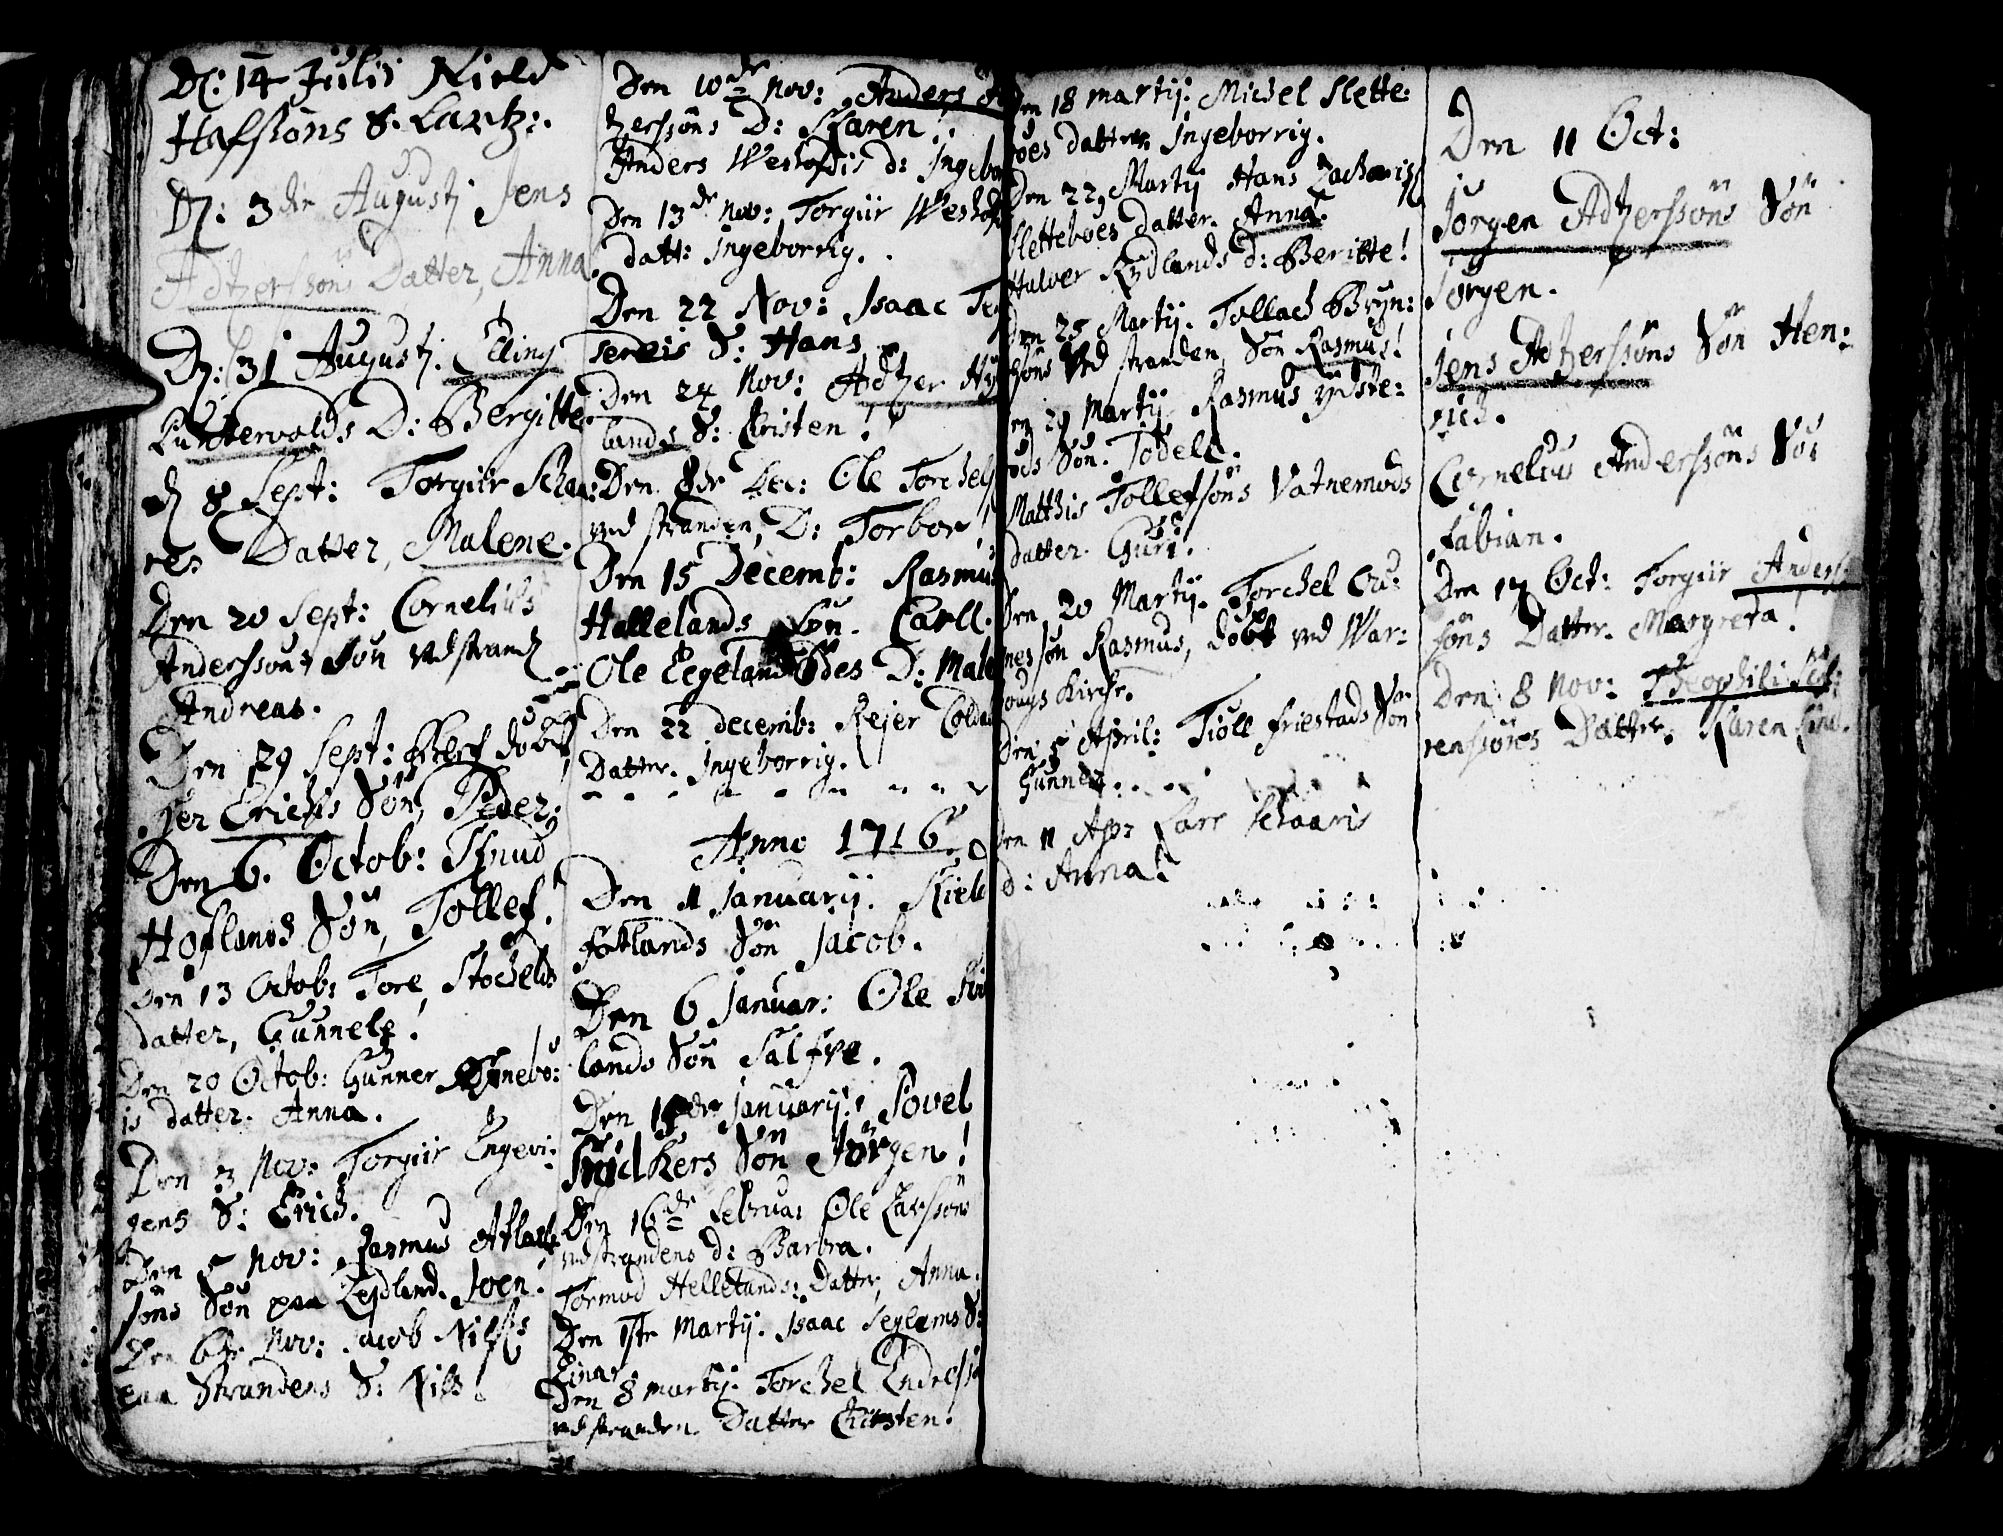 D: 14 Julii Nield
Hafssøns S. Lartz:.
D: 3die Augustj Jens
Adtzerssøns Datter, Anna
D: 31 Augustj. Elling
D: Bergitte
D 8 Sept: Torgiir Schaa:
res Datter, Malene.
Den 20 Sept: Cornelius
Anderssøns Søn vd strand
Andreas.
Den 29 Sept: døbt
Her Erichs Søn, Peder,
Den 6. Octob: Knud
Hoflands Søn, Tollef!
Den 13 Octob: Tore Stochelds
datter, Gunnele!
Den 20 Octob: Gunner
is datter. Anna.
Den 3 Nov: Torgiir Engevi:
gens S: Erich.
Den 5 Nov: Rasmus Aslach
søns Søn paa Joen.
Den 6te Nov: Jacob Nilss
Strandens S: Nils!
Den 10de Nov: Anders
tzerssøns D: Karen.
Anders d: Ingebo
Den 13de Nov: Torgiir
datt: Ingeborrig.
Den 22 Nov: Isaac
S: Hans
Den 24 Nov: Adtzer
lands S: Christen!
Den 8de Dec: Ole Torchels
ved stranden, D: Torbor!
Den 15 Decemb: Rasmus
Hallelands Søn. Carll.
Ole D: Male
Den 22 decemb: Rejer
Datter. Ingeborrig.
Anno 1716.
Den 11 Januarij. Kield
Søn Jacob.
Den 6 Januar: Ole
lands Søn Salfve.
Den Januarij. Povel
Snidkers Søn Jørgen!
Den 16de Februa: Ole Larssøns
ved strandens d: Barbra.
Tormod Hellelands: Datter, Anna.
Den 1ste Martij. Isaac S:
Einar.
Den 8 Martij. Torchel Endress
ved stranden Datter Christen.
Den 18 Martij. Michel Slette:
boes datter Ingeborrig.
Den 22 Martij Hans Zacharis
Sletteboes datter. Anna.
Halver Rydlands d: Beritte!
Den 25 Martij. Tollach Bryn:
søns Ved stranden, Søn Rasmus!
Den 29 Martij Rasmus
Søn. Todell.
Matthis Tollefsøns Vatnemods
datter. Guri.
Den 20 Martij. Torchel
søn Rasmus, døbt ved War:
Kirche.
Den 5 April: Tioll Friestads Søn
Gunner.
Den 11 Ap: Lars Schaaris
d: Anna!
Den 11 Oct:
Jørgen Adtzerssøns Søn
Sørgen.
Jens Adtzerssøns Søn Hen:
rich.
Cornelius Anderssøns Søn
Fabian.
Den 17 Oct: Torgiir Anders:
søns Datter. Margreta.
Den 8 Nov: Theophili
renssøns Datter. Karen